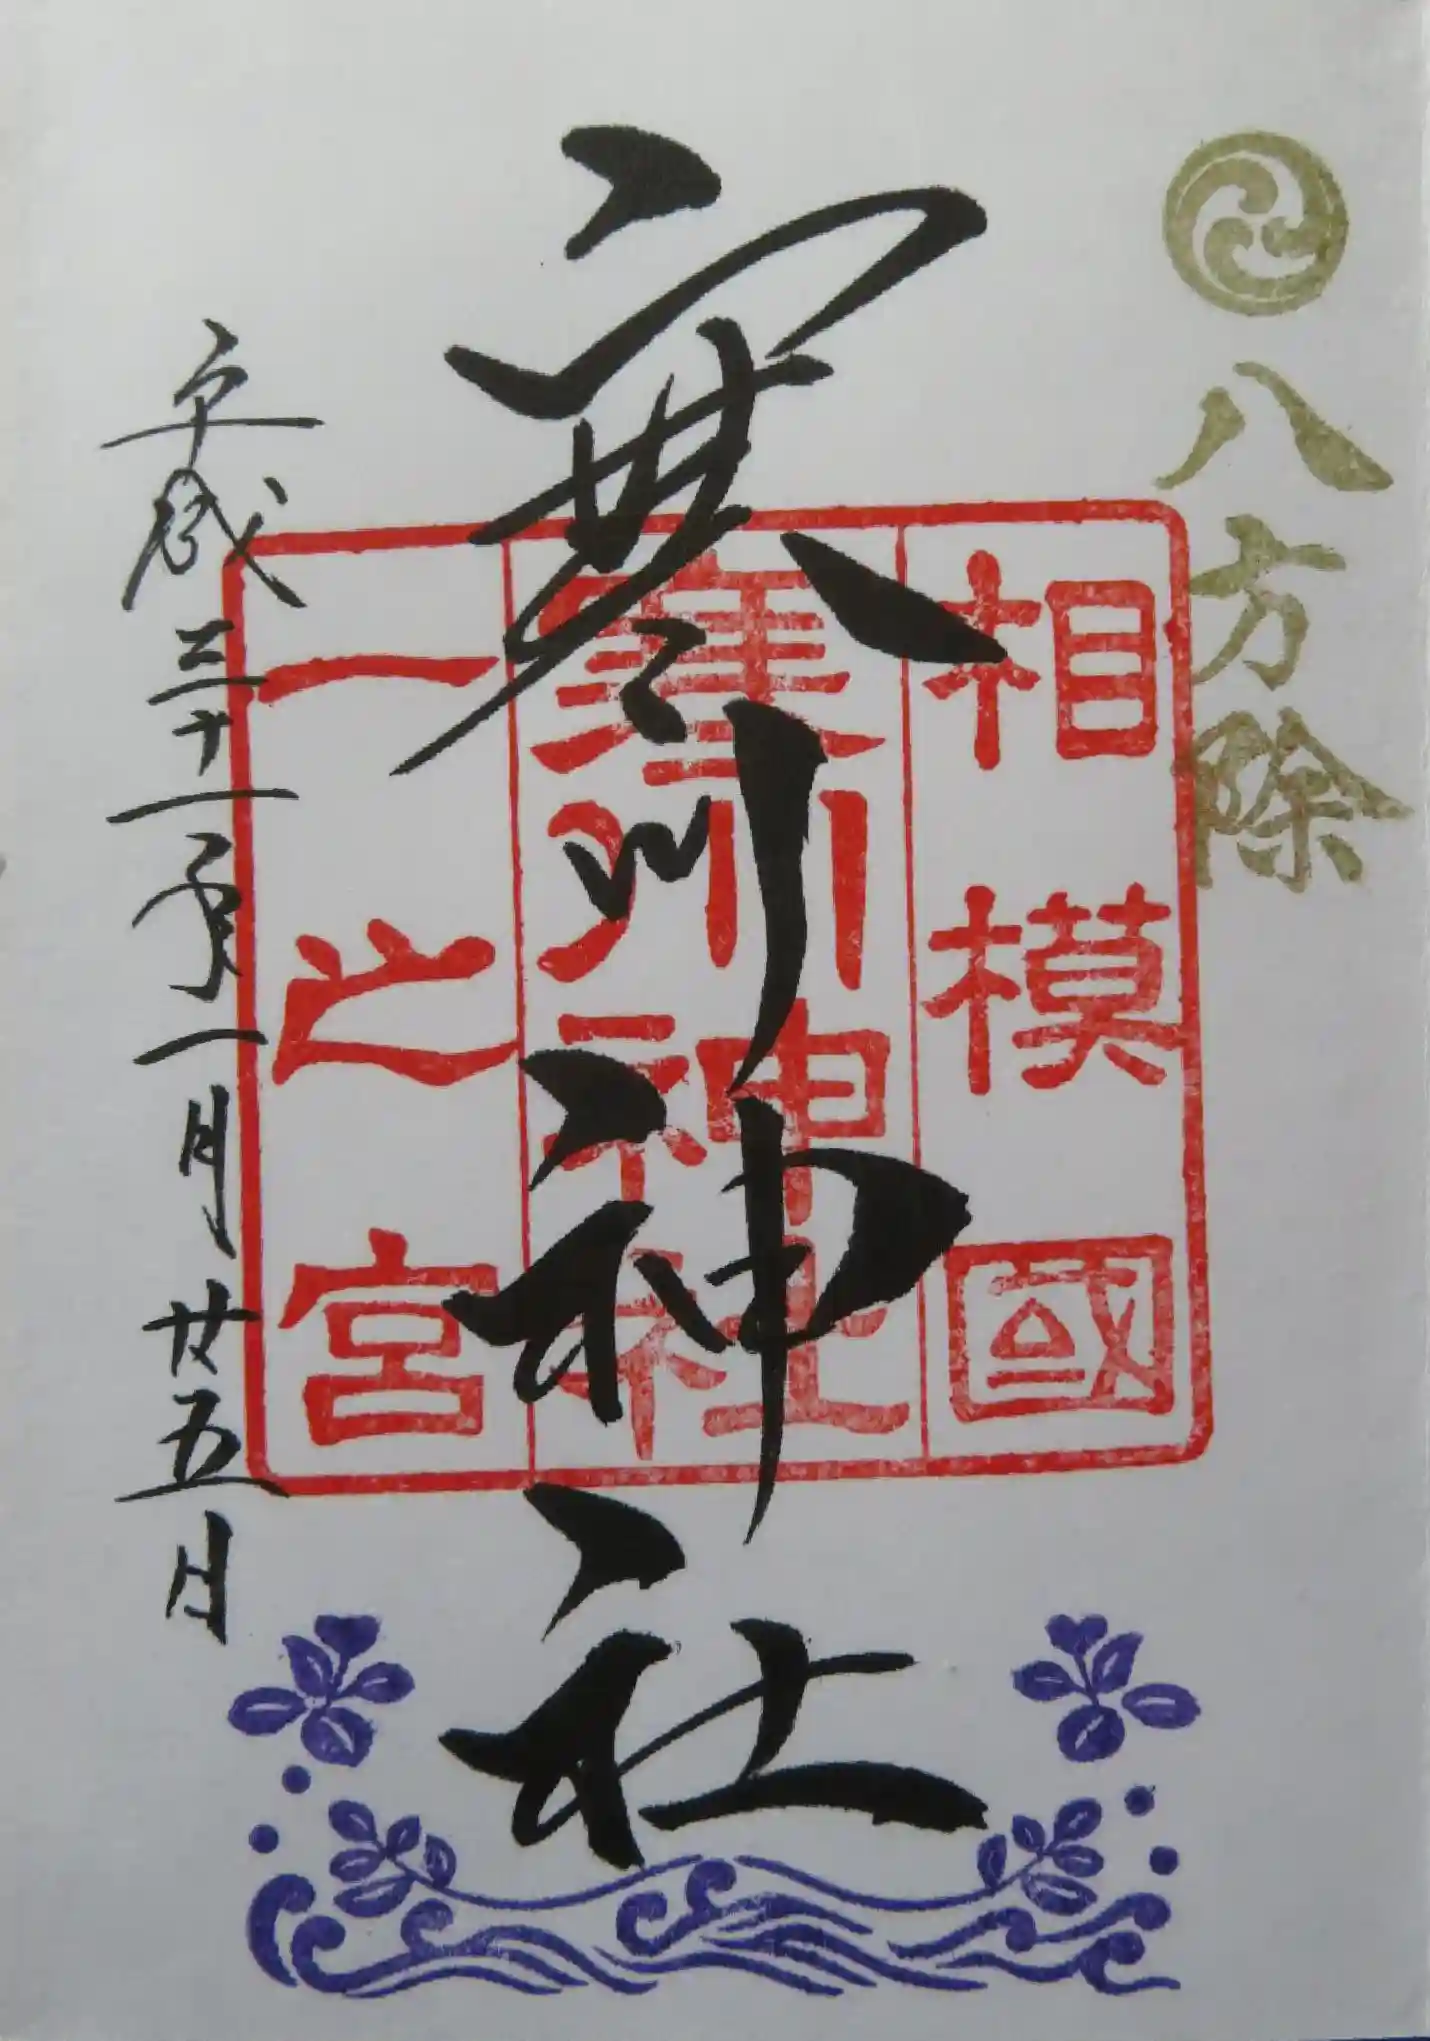 八方除
相模國
寒川神社
一之宮
寒川神社
平成三十一年一月廿五日